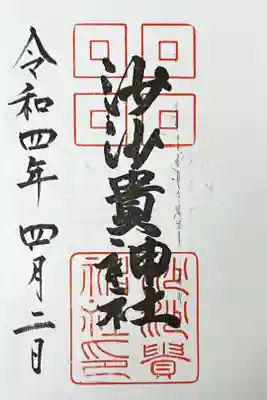 沙沙貴神社
令和四年 四月二日
沙沙貴
神社印